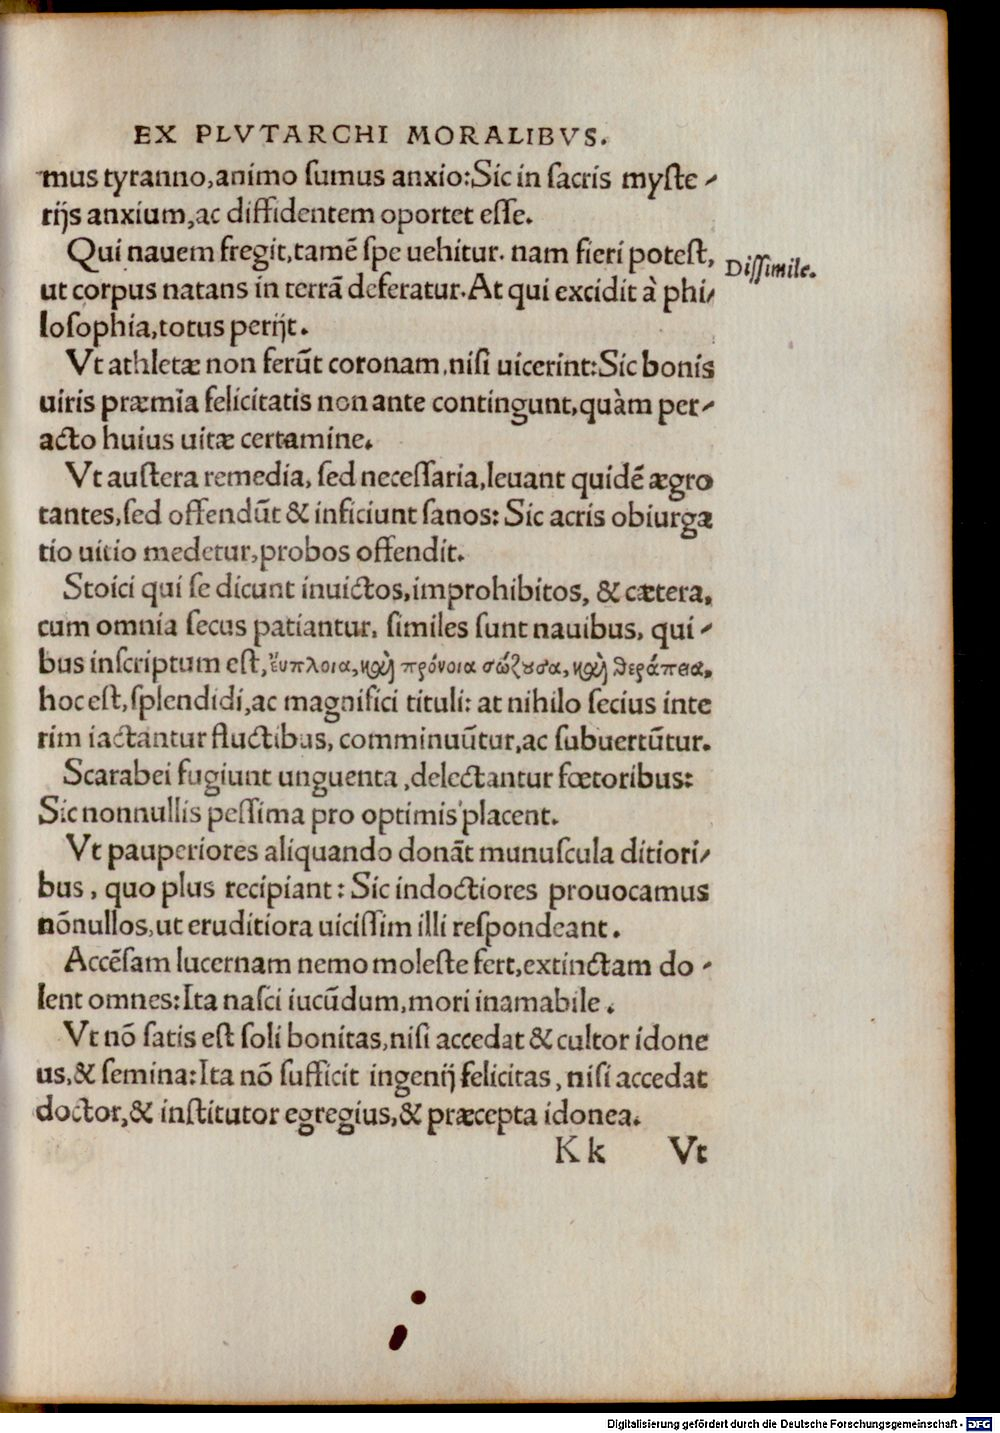 EX PLVTARCHI MORALIBVS.
mus tyranno, animo ſumus anxio: Sic in ſacris myſte-
rijs anxium, ac diffidentem oportet eſſe.
Qui nauem fregit, tamẽ ſpe uehitur. nam fieri poteſt,
Diſſimile.
ut corpus natans in terrã deferatur. At qui excidit à phi/
loſophia, totus perijt.
Vt athletæ non ferũt coronam, niſi uicerint: Sic bonis
uiris præmia felicitatis non ante contingunt, quàm per-
acto huius uitæ certamine.
Vt auſtera remedia, ſed neceſſaria, leuant quidẽ ægro
tantes, ſed offendũt & inficiunt ſanos: Sic acris obiurga
tio uitio medetur, probos offendit.
Stoici qui ſe dicunt inuictos, improhibitos, & cætera,
cum omnia ſecus patiantur, ſimiles ſunt nauibus, qui-
bus inſcriptum eſt, ἔυπλοια, καὶ πρόνοια σώζουσα, καὶ θεράπεια,
hoc eſt, ſplendidi, ac magnifici tituli: at nihilo ſecius inte
rim iactantur fluctibus, comminuũtur, ac ſubuertũtur.
Scarabei fugiunt unguenta, delectantur fœtoribus:
Sic nonnullis peſſima pro optimis placent.
Vt pauperiores aliquando donãt munuſcula ditiori/
bus, quo plus recipiant: Sic indoctiores prouocamus
nõnullos, ut eruditiora uiciſſim illi reſpondeant.
Accẽſam lucernam nemo moleſte fert, extinctam do-
lent omnes: Ita naſci iucũdum, mori inamabile.
Vt nõ ſatis eſt ſoli bonitas, niſi accedat & cultor idone
us, & ſemina: Ita nõ ſufficit ingenij felicitas, niſi accedat
doctor, & inſtitutor egregius, & præcepta idonea.
K k Vt
Digitalisierung gefördert durch die Deutsche Forschungsgemeinschaft - DFG